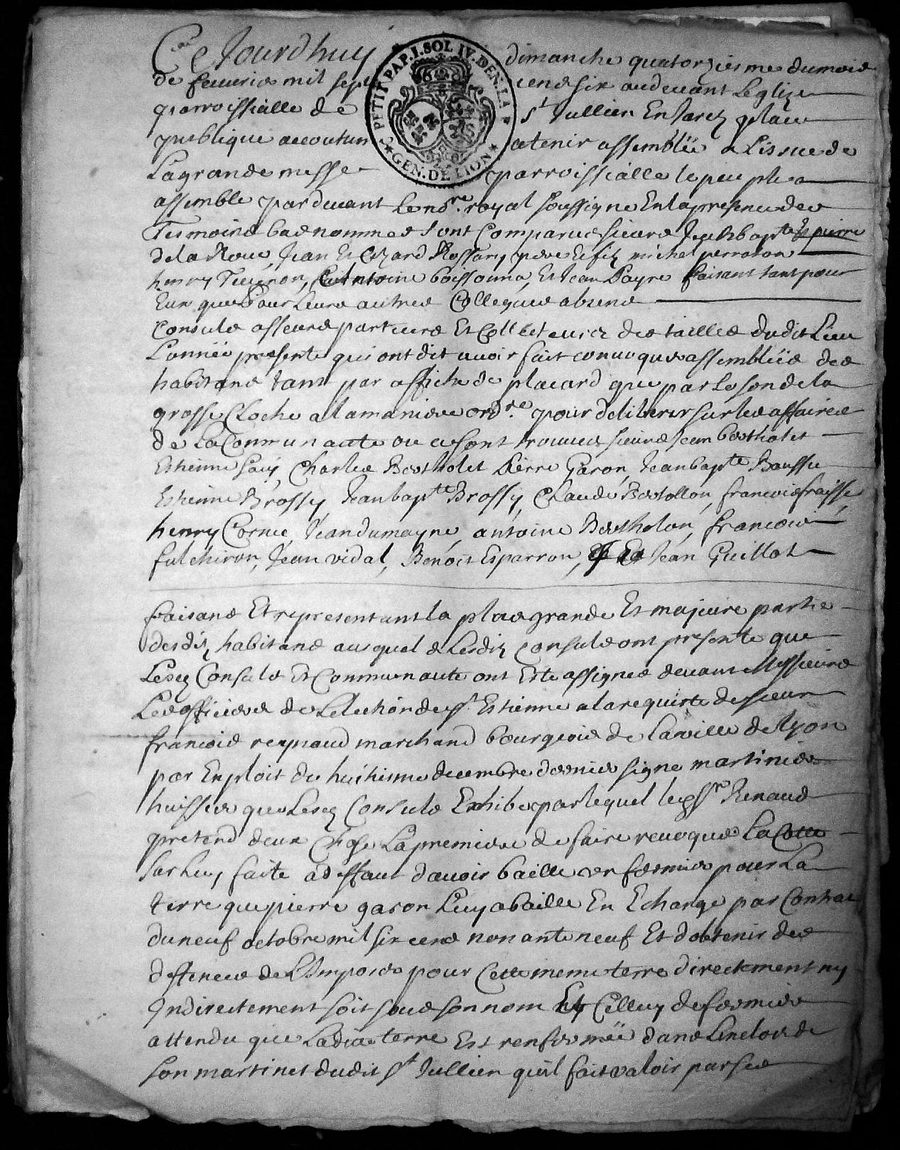 Ce Jourdhuy dimanche quatorziesme du mois
de feuerier mil sept cens six audeuant Leglize
parroissialle de St Jullien En Jarez place
publique accoutumé atenir assemblée a Lissue de
La grande messe parroissialle le peuple
assemble par deuant Le no.re royal soussigne En la presence des
Tesmoins bas nommes sont Comparus sieurs Jean bap.te Et pierre
de la Roue Jean Et Cezard Rossary pere Et fis michel perroton
henry Antoine boissonna, Et Jean payre faisant tant pour
Eux que pour Leurs autres Collegues absens
Consuls asseurs parteurs Et Collecteurs des tailles dudit Lieu
Lannée presente qui ont dit auoir fait conuoquer assemblée des
habitans tant par affiche de placard que par Le son de la
grosse Cloche a la maniere ord.re pour deliberer sur les affaires
de La Communaute ou ce sont trouues sieurs Jean bertholet
Estienne Charles Bertholet Pierre Garon Jean bap.te Bausse
Estienne Brossy, Jean bap.te Brossy, Claude Bertollon, francois fraisse
henry Cornu, Jean dumayne, antoine Bertholon, francois
fulchiron, Jean vidal, Benoit Esparron, Et Jean Guillot
faisans Et representant la plus grande Et majeure partie
desdiz habitans ausquels Lesdiz Consuls ont presente que
Lesd Consuls Et Communaute ont Este assignes deuant Messieurs
Les officiers de Lelection de St Estienne a la requiste de sieur
francois reynaud marchand bourgeois de la ville de Lyon
par Exploit du huitiesme decembre dernier signe martinier
huissier que Lesd Consuls Exhibe par lequel led Sr Renaud
pretend deux Chefs La premiere de faire reuoquer La Cotte
sur Luy faite a deffaut dauoir baille un fermier pour La
terre que pierre garon Luy a baille En Echange par Contrac
du neuf octobre mil six cens nonante neuf Et dobtenir des
deffences de L'Imposer pour Cette meme terre directement ny
Indirectement soit sous son nom Et Celluy de fermier
attendu que Ladite terre Est renfermée dans Lenclos de
son martinet dudit St Jullien quil fait valoir par ses
PETIT PAP. I. SOL IV. DEN. LA
GEN. DE LION